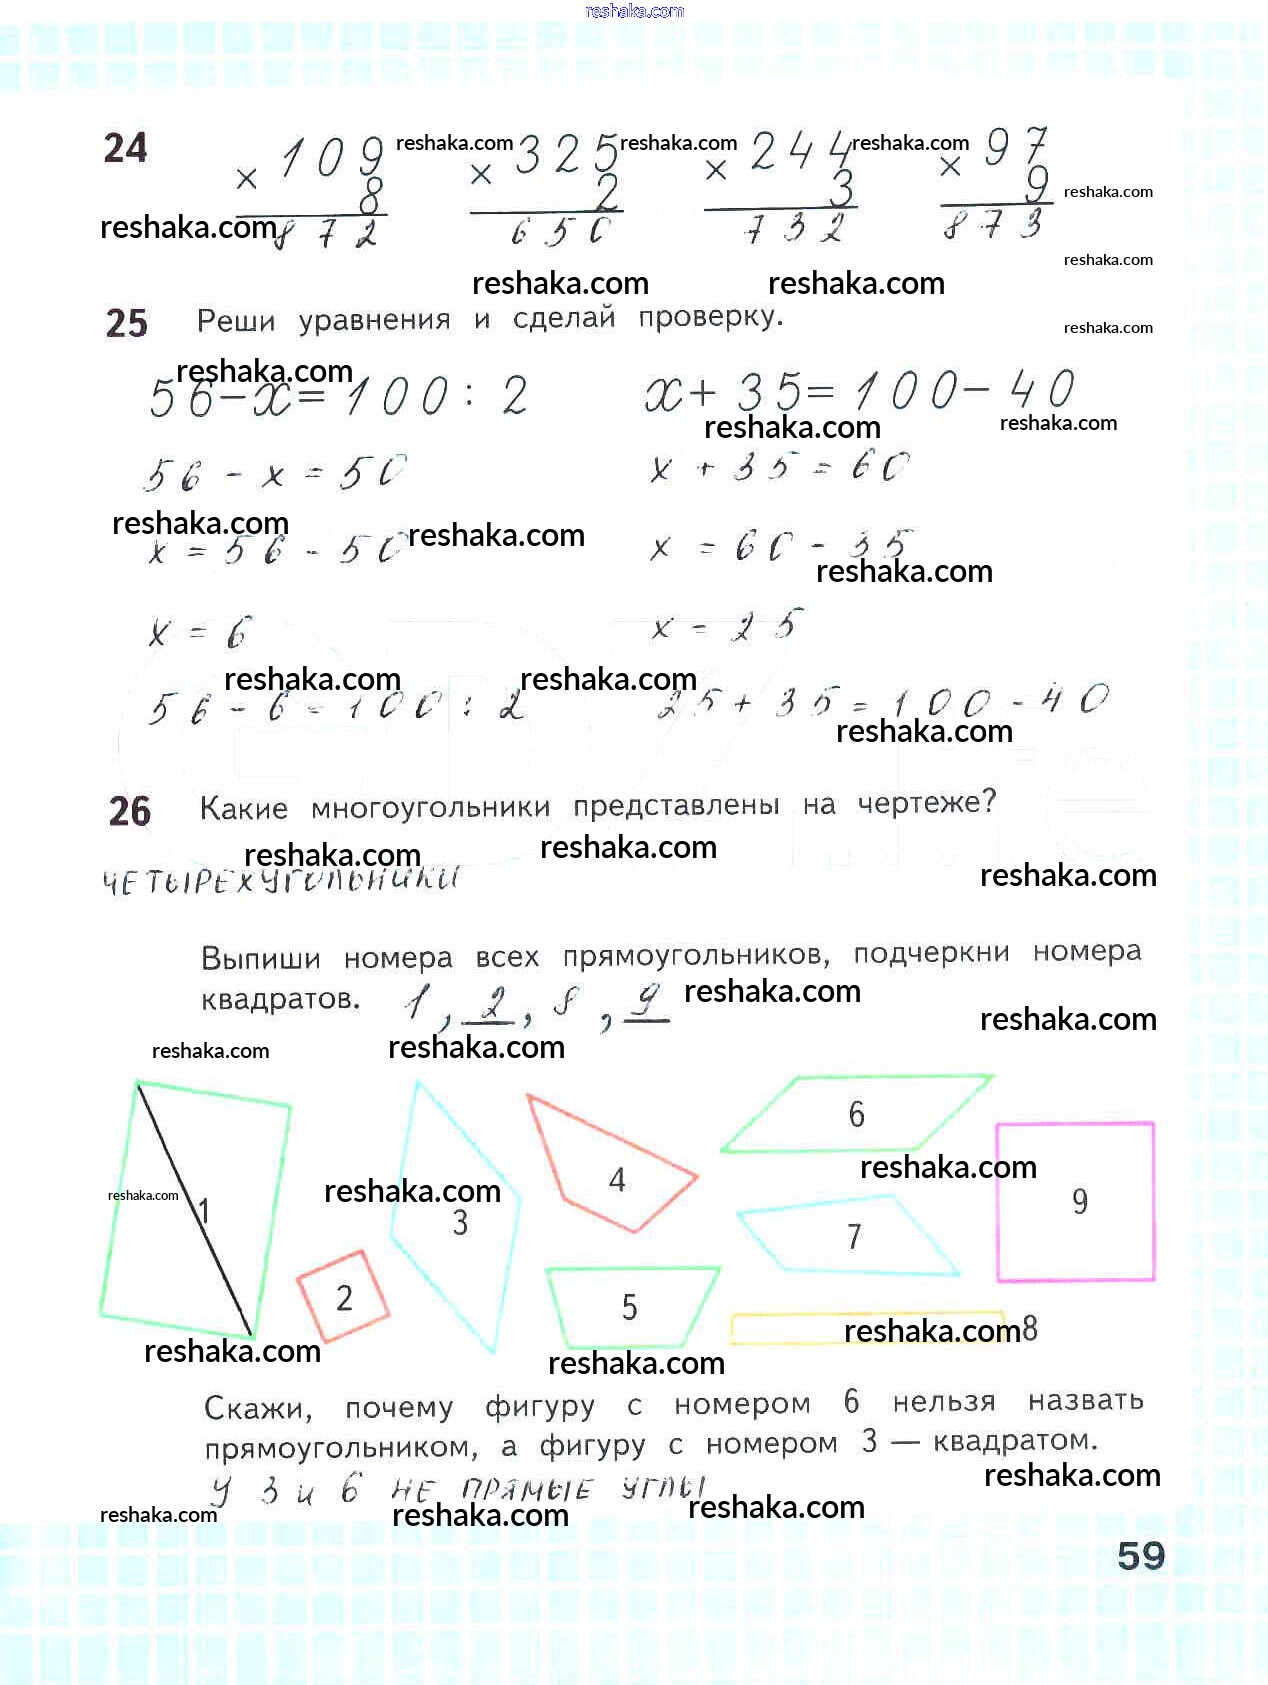 reshaka.com
24 × 109 reshaka.com × 325 reshaka.com × 244 reshaka.com × 97
8 2 3 9 reshaka.com
reshaka.com 872 650 732 873
reshaka.com
reshaka.com reshaka.com
25 Реши уравнения и сделай проверку.
reshaka.com
reshaka.com
56-x=100:2 x+35=100-40
reshaka.com reshaka.com
56-x=50 x+35=60
reshaka.com reshaka.com
x=56-50 x=60-35
reshaka.com
x=6 x=25
reshaka.com reshaka.com
56-6=100:2 25+35=100-40
reshaka.com
26 Какие многоугольники представлены на чертеже?
reshaka.com reshaka.com
ЧЕТЫРЕХУГОЛЬНИКИ reshaka.com
Выпиши номера всех прямоугольников, подчеркни номера
квадратов. 1, 2, 8, 9 reshaka.com
reshaka.com
reshaka.com reshaka.com
6
reshaka.com
reshaka.com 1 reshaka.com 3 4 7 9
2 5 reshaka.com 8
reshaka.com reshaka.com
Скажи, почему фигуру с номером 6 нельзя назвать
прямоугольником, а фигуру с номером 3 — квадратом.
reshaka.com
У 3 и 6 НЕ ПРЯМЫЕ УГЛЫ
reshaka.com reshaka.com reshaka.com
59